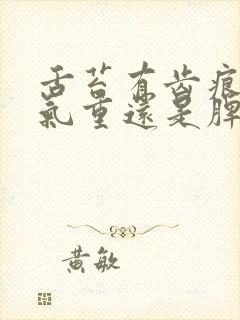 舌苔有齿痕
氣重還是脾
黃敏